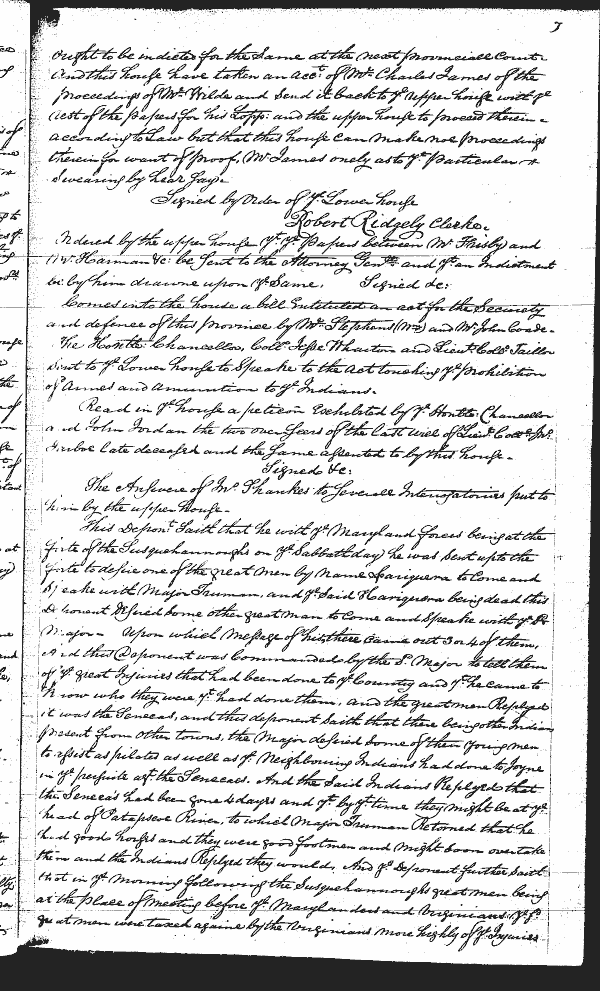 7
ought to be indicted for the Same at the next provinciall Court.
And this house have taken an acct. of Mr. Charles James of the
proceedings of Mr. Wilde and Send it back to ye. upper house with ye
rest of the papers for his Lopp: and the upper house to proceed therein
according to Law but that this house Can make noe proceedings
therein for want of proof, Mr James onely as to ye. Particular
Swearing by hear Say.
Signed by Order of ye. Lower house
Robert Ridgely Clerke.
Ordered by the upper house yt. ye. Papers between Mr Frisby and
Mr. Harman &c: be Sent to the Attorney Genll. and yt. an Indictment
be by him drawne upon ye Same. Signed &c:
Comes into the house a bill Entituled an act for the Security
and defence of this Province by Mr. Stephens (Wm) and Mr. John Coade.
The Honble. Chancellor, Coll. Jesse Wharton and Lieut. Coll. Taillor
Sent to ye. Lower house to Speake to the Act touching ye Prohibition
of Armes and Amunition to ye Indians.
Read in ye. house a peticon Exhibited by ye. Honble: Chancellor
and John Jordan the two overseers of the last will of Lieut. Coll. Jno.
late deceased and the Same assented to by this house.
Signed &c:
The Answere of Mr. Shankes to Severall Interogatories put to
him by the upper house.
This Depont. Saith that he with ye. Maryland forces being at the
forte of the Susquehannoughs on ye. Sabbath day he was Sent up to the
forte to desire one of the great men by name Hariguera to Come and
Speake with Major Truman, and ye. Said Hariguera being dead this
Deponent desired Some other great man to Come and Speake with ye. Sd.
Major. Upon which Message of his there Came out 3 or 4 of them,
And this Deponent was Commanded by the Sd. Major to tell them
of ye. great Injuries that had been done to ye Country and yt. he came to
know who they were yt. had done them, and the great men Replyed
it was the Senecas, and this deponent Saith that there being other Indians
present from other towns, the Major desired Some of them young men
to assist as pilotes as well as ye. Neighbouring Indians had done to Joyne
in ye. persuite of the Senecas. And the Said Indians Replyed that
the Senecas had been gone 4 dayes and yt. by yt. time they might be at ye.
head of Patapsco River, to which Major Truman Retorned that he
had good horses and they were good footmen and might Soon overtake
them and the Indians Replyed they would. And ye. Deponent further Saith
that in ye. Morning following the Susquehannoughs great men being
at the place of meeting before ye. Marylanders and Virginians ye. sd.
great men were taxed againe by the Virginians more highly of ye. Injuries